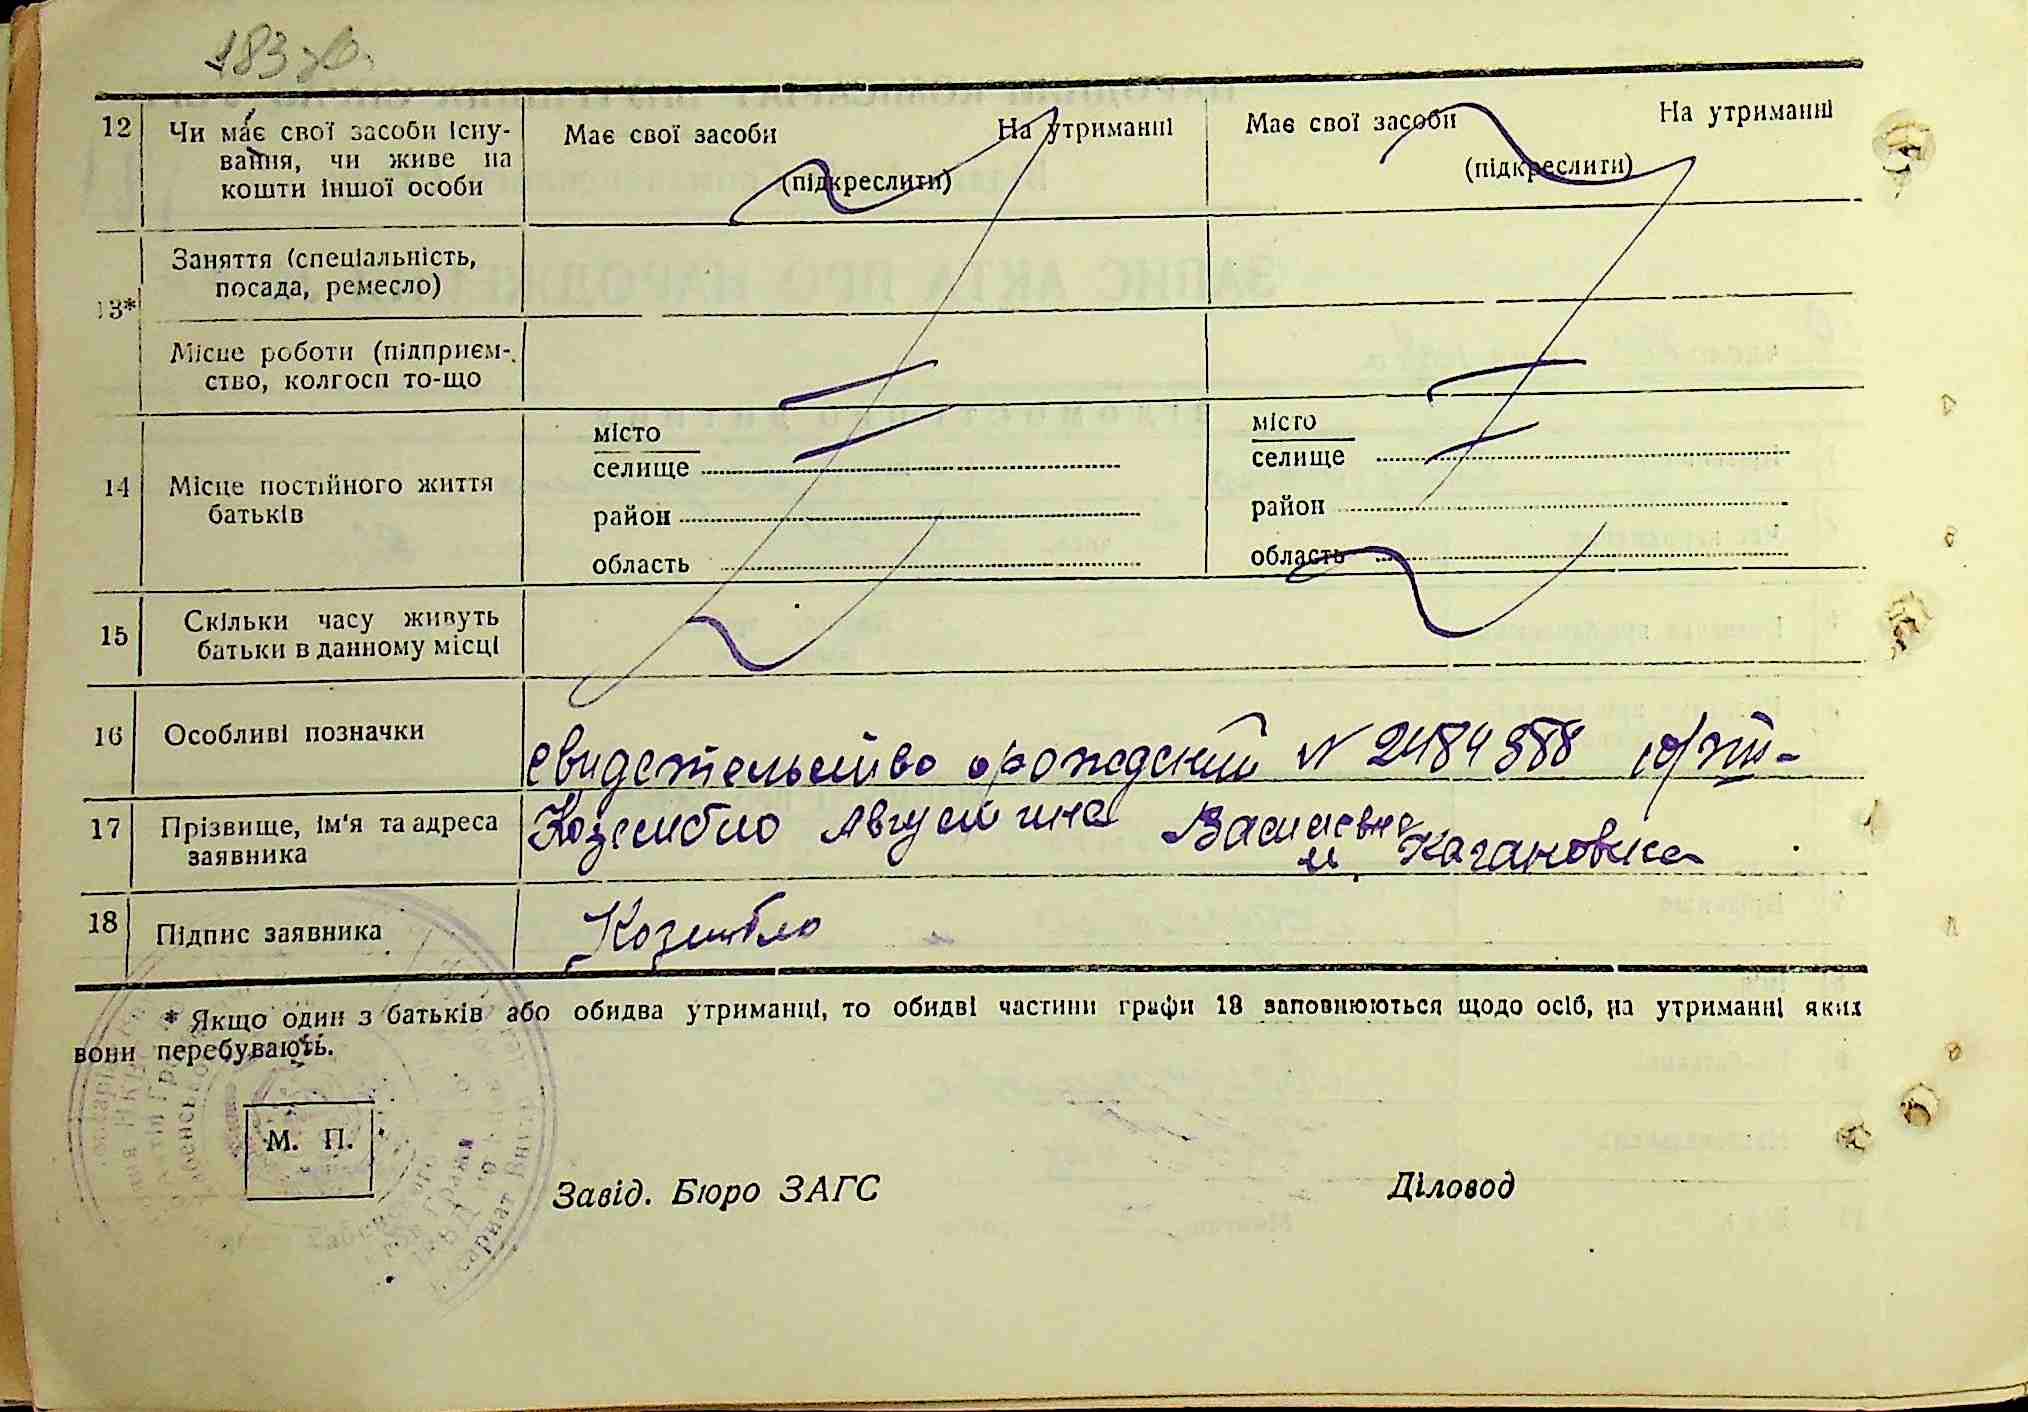 183 зв.
12 Чи має свої засоби існу- Має свої засоби На утриманні Має свої засоби На утриманні
вання, чи живе на (підкреслити) (підкреслити)
кошти іншої особи
13* Заняття (спеціальність,
посада, ремесло)
Місце роботи (підприєм-
ство, колгосп то-що
14 Місце постійного життя
батьків
місто місто
селище селище
район район
область область
15 Скільки часу живуть
батьки в данному місці
16 Особливі позначки
свидетельство о рождении № 2484988
17 Прізвище, ім'я та адреса
заявника
Августина Васильевна
м. Кагановича
18 Підпис заявника
* Якщо один з батьків або обидва утриманці, то обидві частини графи 18 заповнюються щодо осіб, на утриманні яких
вони перебувають.
М. П.
Завід. Бюро ЗАГС Діловод